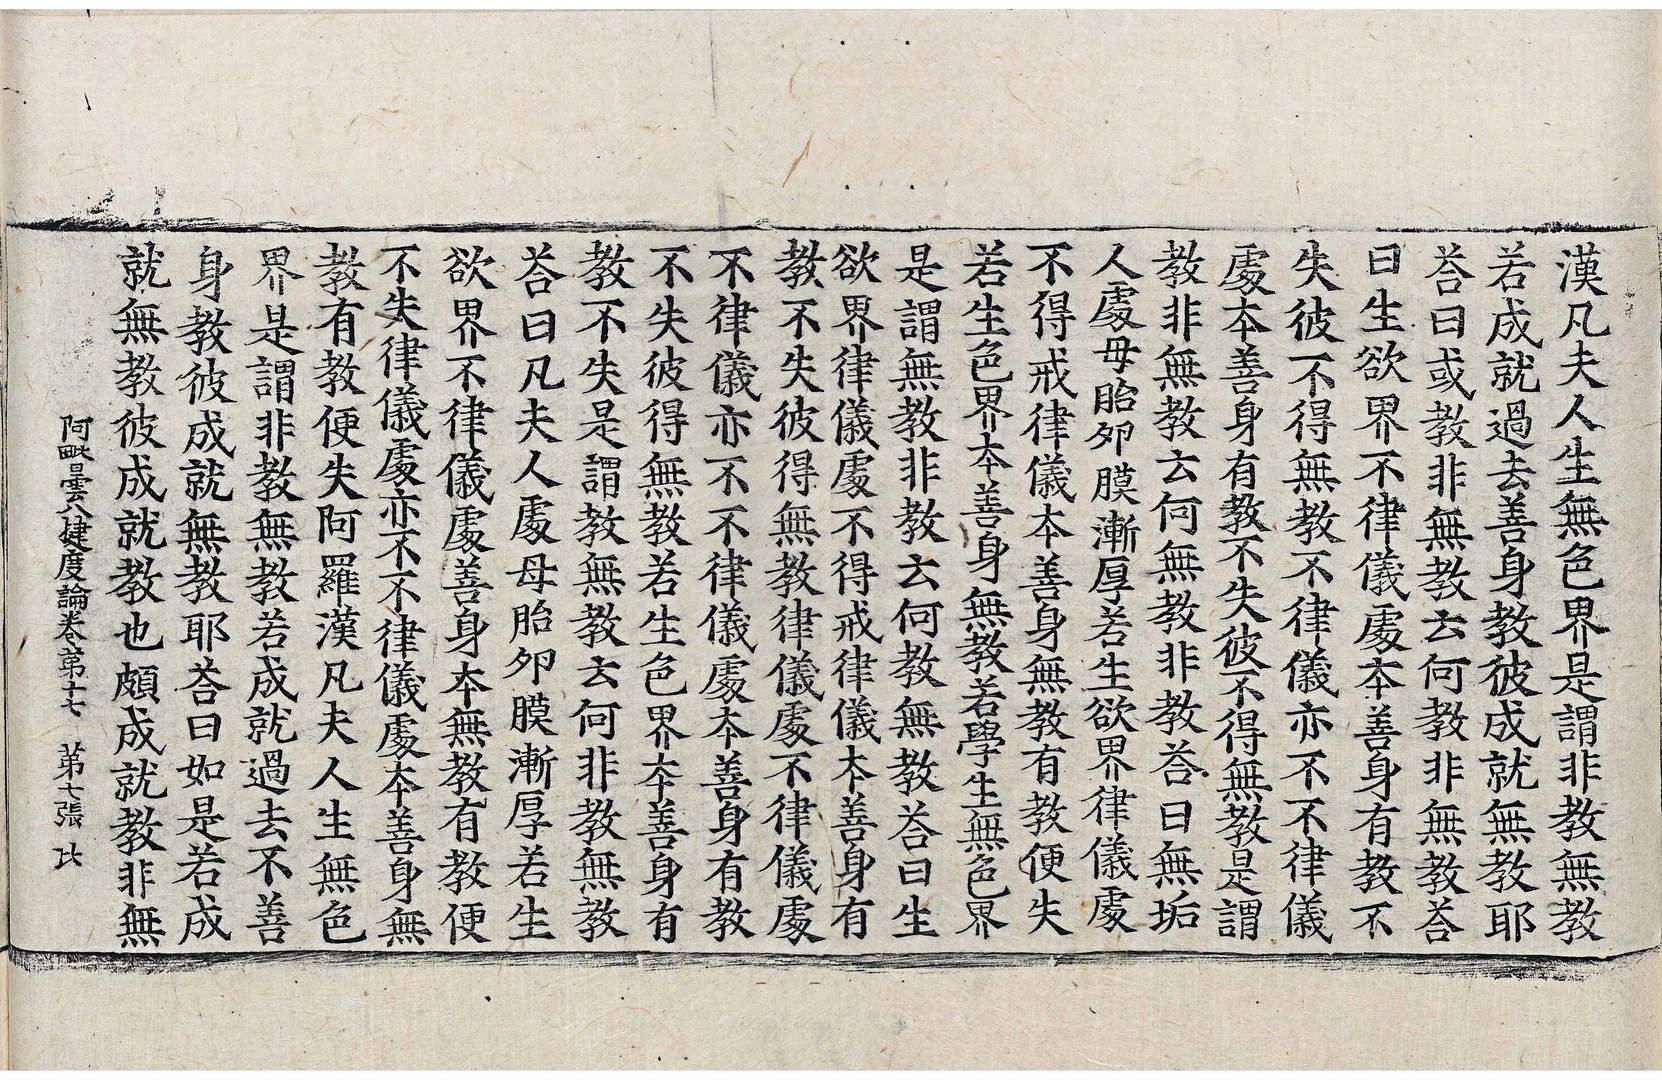 漢凡夫人生無色界是謂非教無教
若成就過去善身教彼成就無教耶
荅曰或教非無教云何教非無教荅
曰生欲界不律儀處本善身有教不
失彼不得無教不律儀亦不不律儀
處本善身有教不失彼不得無教是謂
教非無教云何無教非教荅曰無垢
人處母胎卵膜漸厚若生欲界律儀處
不得戒律儀本善身無教有教便失
若生色界本善身無教若學生無色界
是謂無教非教云何教無教荅曰生
欲界律儀處不得戒律儀本善身有
教不失彼得無教律儀處不律儀處
不律儀亦不不律儀處本善身有教
不失彼得無教若生色界本善身有
教不失是謂教無教云何非教無教
荅曰凡夫人處母胎卵膜漸厚若生
欲界不律儀處善身本無教有教便
不失律儀處亦不不律儀處本善身無
教有教便失阿羅漢凡夫人生無色
界是謂非教無教若成就過去不善
身教彼成就無教耶荅曰如是若成
就無教彼成就教也頗成就教非無
阿毗曇八揵度論卷第十七 第七張 比